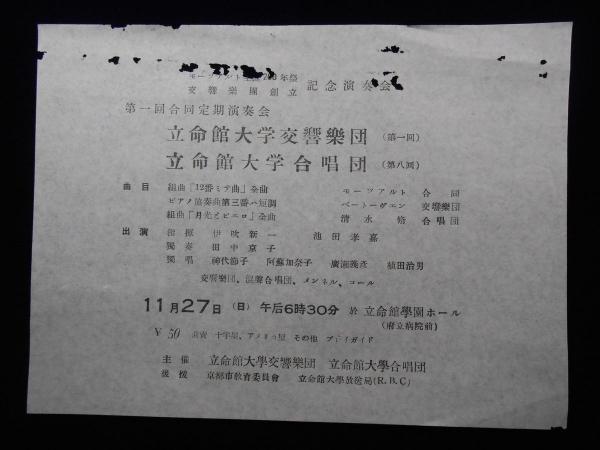 モーツアルト生誕200年祭
交響樂團創立 記念演奏会
第一回合同定期演奏会
立命館大学交響樂団 (第一回)
立命館大学合唱団 (第八回)
曲目 組曲「12番ミサ曲」全曲 モーツアルト 合同
ピアノ協奏曲第三番ハ短調 ベートーヴエン 交響樂団
組曲「月光とピエロ」全曲 清水脩 合唱団
出演 指揮 伊吹新一 池田孝嘉
獨奏 田中京子
獨唱 神代節子 阿蘇加奈子 廣瀬義彦 植田治男
交響樂団、混聲合唱団、メンネル、コール
11月27日 (日) 午后6時30分 於 立命館學園ホール
(府立病院前)
¥50 前賣 十字屋、アメリカ屋 その他 プレイガイド
主催 立命館大學交響樂団 立命館大學合唱団
後援 京都市教育委員會 立命館大學放送局(R.B.C)